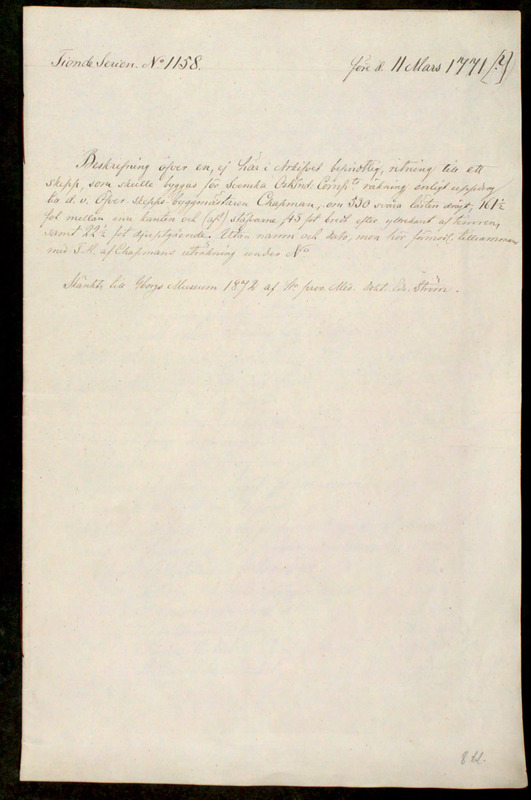 Tionde Serien. No 1158.
före d. 11 Mars 1771 [?]
Beskrifning öfver en, ej här i Arkifvet befindtlig, ritning till ett
skepp, som skulle byggas för Svenska Ostind. Comp:ts räkning enligt uppdrag
till d. v. Öfver Skepps-byggmästaren Chapman, om 530 svåra lästers drägt, 161½
fot mellan inn kanten och [af] stäfvarne, 43 fot bredt efter ytterkant af
samt 22½ fot djupt-gående. Utan namn och dato, men hör förmodl. tillsamman
med F. H. af Chapmans uträkning under No
Skänkt till Gborgs Museum 1872 af f.d. prov. Med. Dokt. Ström.
8 bl.